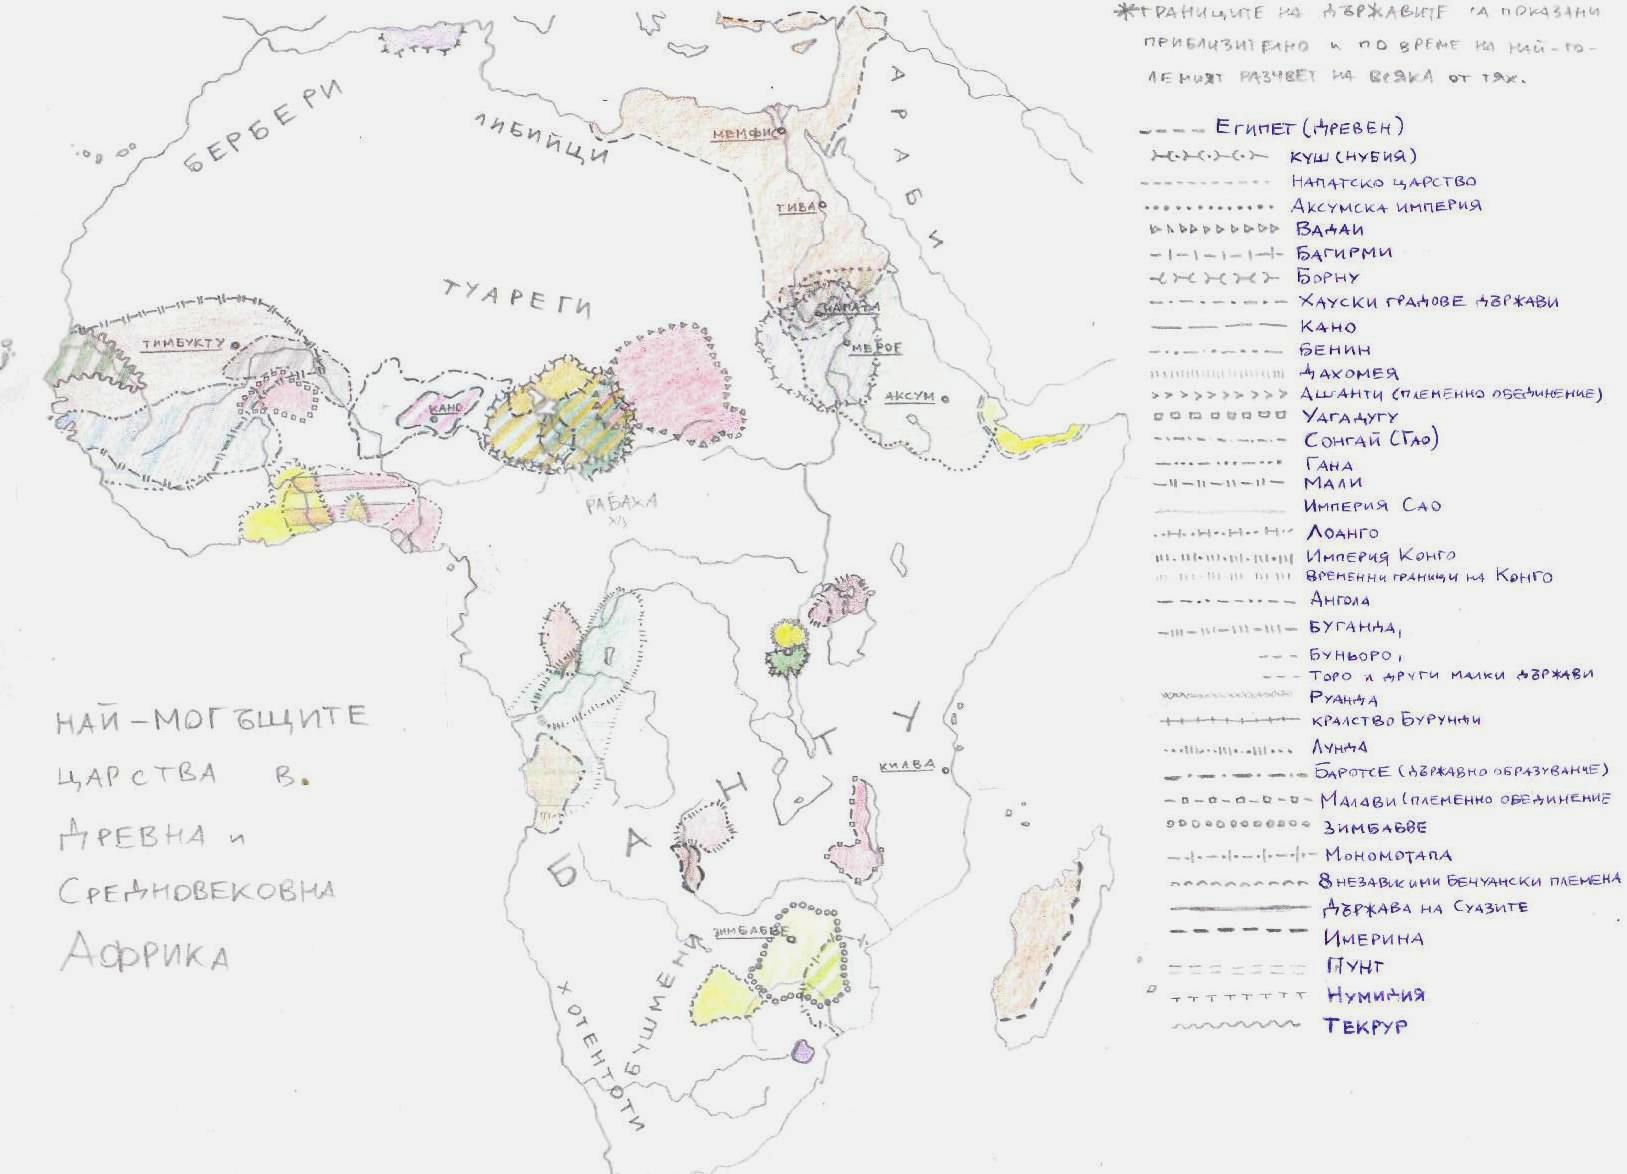 *ГРАНИЦИТЕ НА ДЪРЖАВИТЕ СА ПОКАЗАНИ
ПРИБЛИЗИТЕЛНО И ПО ВРЕМЕ НА НАЙ-ГО-
ЛЕМИЯТ РАЗЦВЕТ НА ВСЯКА ОТ ТЯХ.
ЕГИПЕТ (ДРЕВЕН)
КУШ (НУБИЯ)
НАПАТСКО ЦАРСТВО
АКСУМСКА ИМПЕРИЯ
ВАДАИ
БАГИРМИ
БОРНУ
ХАУСКИ ГРАДОВЕ ДЪРЖАВИ
КАНО
БЕНИН
ДАХОМЕЯ
АШАНТИ (ПЛЕМЕННО ОБЕДИНЕНИЕ)
УАГАДУГУ
СОНГАЙ (ГАО)
ГАНА
МАЛИ
ИМПЕРИЯ САО
ЛОАНГО
ИМПЕРИЯ КОНГО
ВРЕМЕННИ ГРАНИЦИ НА КОНГО
АНГОЛА
БУГАНДА,
БУНЬОРО,
ТОРО И ДРУГИ МАЛКИ ДЪРЖАВИ
РУАНДА
КРАЛСТВО БУРУНДИ
ЛУНДА
БАРОТСЕ (ДЪРЖАВНО ОБРАЗУВАНИЕ)
МАЛАВИ (ПЛЕМЕННО ОБЕДИНЕНИЕ
ЗИМБАБВЕ
МОНОМОТАПА
8 НЕЗАВИСИМИ БЕЧУАНСКИ ПЛЕМЕНА
ДЪРЖАВА НА СУАЗИТЕ
ИМЕРИНА
ПУНТ
НУМИДИЯ
ТЕКРУР
БЕРБЕРИ
ЛИБИЙЦИ
АРАБИ
МЕМФИС
ТИВА
ТУАРЕГИ
НАПАТА
ТИМБУКТУ
МЕРОЕ
АКСУМ
КАНО
РАБАХА
БАНТУ
КИЛВА
ЗИМБАБВЕ
БУШМЕНИ
ХОТЕНТОТИ
НАЙ-МОГЪЩИТЕ
ЦАРСТВА В
ДРЕВНА И
СРЕДНОВЕКОВНА
АФРИКА